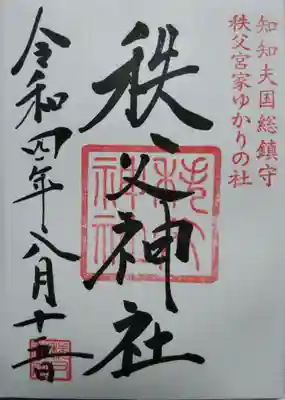 知知夫国総鎮守
秩父宮家ゆかりの社
秩父神社
秩父神社
令和四年八月十日